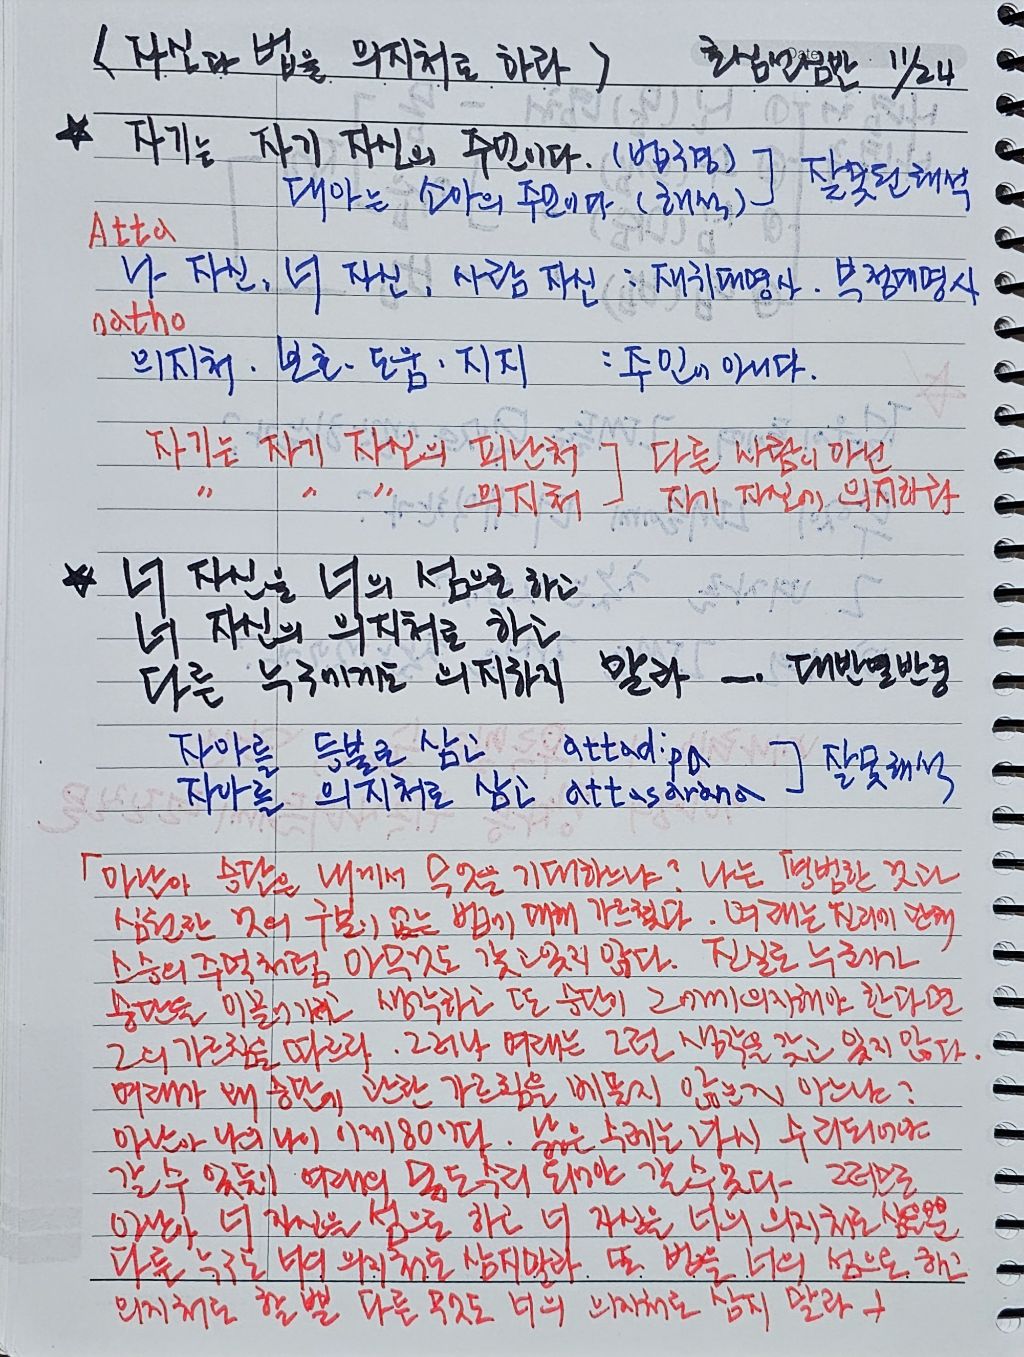 < 자신과 법을 의지처로 하라 > 11/24
☆ 자기는 자기 자신의 주인이다. (법구경)
대아는 소아의 주인이다 (해석) ] 잘못된 해석
Atta
나 자신, 너 자신, 사람 자신 : 재귀대명사. 부정대명사
natho
의지처. 보호. 도움. 지지 : 주인이 아니다.
자기는 자기 자신의 피난처 ] 다른 사람이 아닌
〃 〃 〃 의지처 자기 자신에 의지하라
☆ 너 자신을 너의 섬으로 하고
너 자신의 의지처로 하고
다른 누구에게도 의지하지 말라 ㅡ. 대반열반경
자아를 등불로 삼고 attadipa
자아를 의지처로 삼고 attasarana ] 잘못해석
「아난아 승단은 내게서 무엇을 기대하느냐? 나는 평범한 것과
심원한 것의 구분이 없는 법에 대해 가르쳤다. 여래는 진리에 관해
스승의 주먹처럼 아무것도 갖고있지 않다. 진실로 누군가가
승단을 이끌어가고 생각하고 또 승단이 그에게 의지해야 한다면
그의 가르침을 따르라. 그러나 여래는 그런 생각을 갖고 있지 않다.
여래가 왜 승단에 관한 가르침을 베풀지 않는지 아느냐?
아난아 나의 나이 이제 80이다. 낡은 수레는 다시 수리되어야
갈 수 있듯이 여래의 몸도 수리 되어야 갈 수 있다. 그러므로
아난아 너 자신을 섬으로 하고 너 자신을 너의 의지처로
다른 누구도 너의 의지처로 삼지말라. 또 법을 너의 섬으로 하고
의지처로 할 뿐 다른 무엇도 너의 의지처로 삼지 말라 」